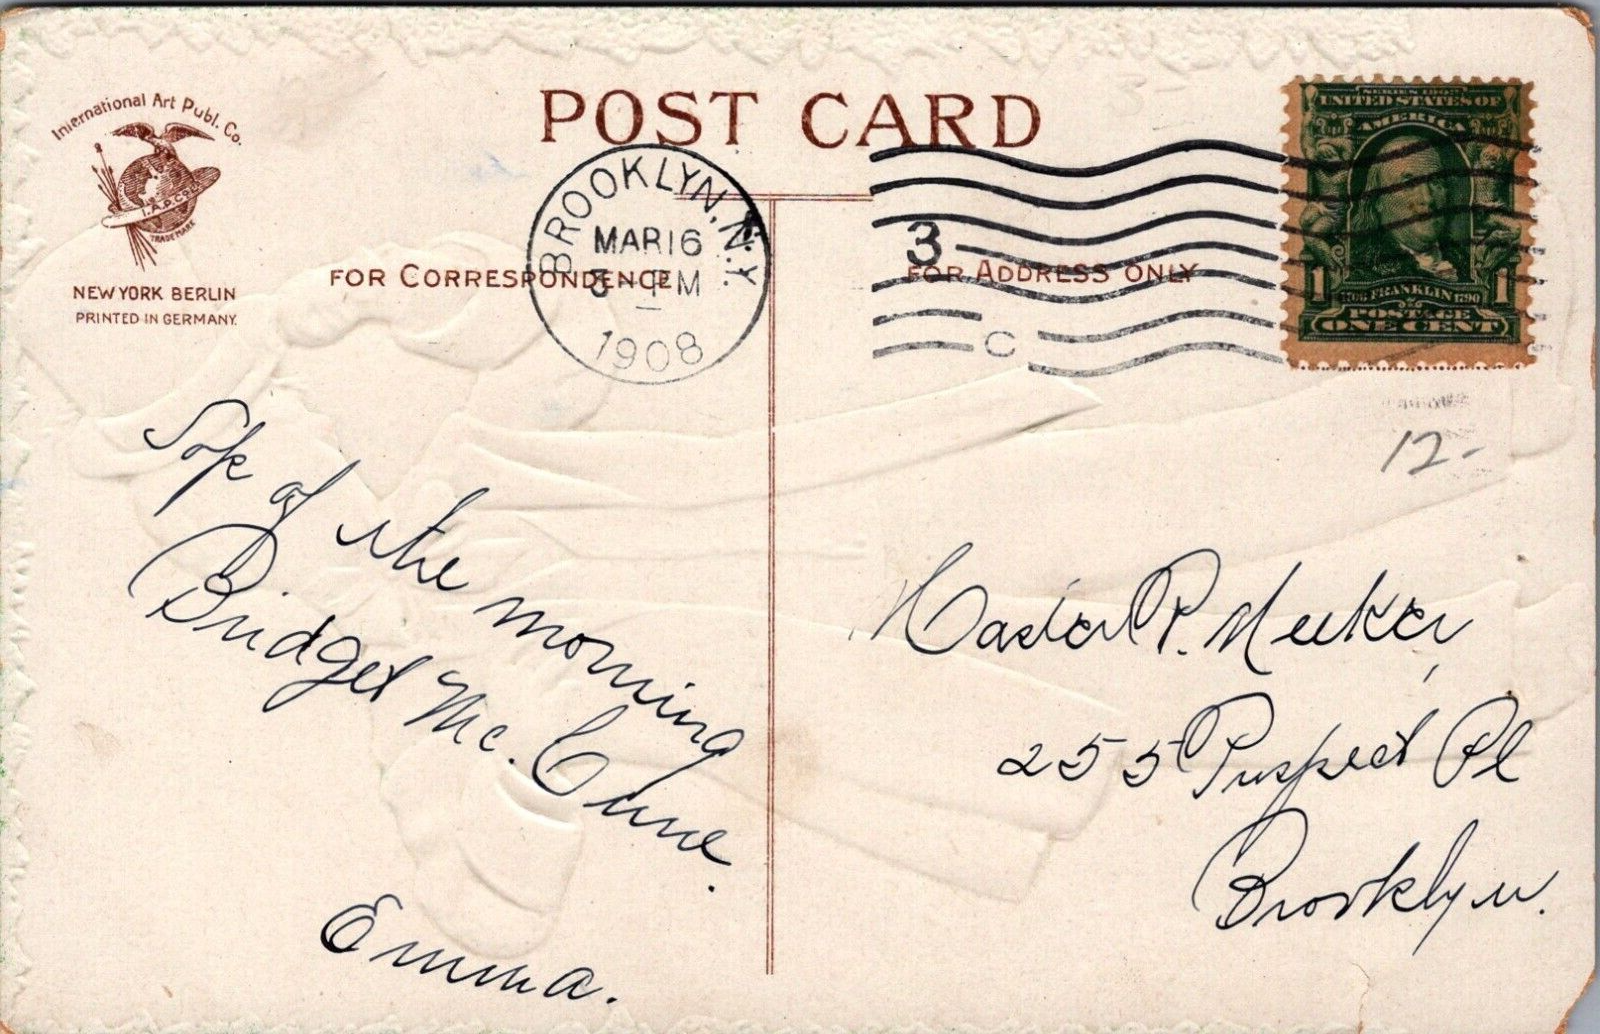 International Art Publ. Co.
I.A.P.CO.
TRADEMARK
NEW YORK BERLIN
PRINTED IN GERMANY.
POST CARD
FOR CORRESPONDENCE
BROOKLYN, N.Y.
MAR 16
3 - PM
1908
3
C
FOR ADDRESS ONLY
SERIES 1902
UNITED STATES OF
AMERICA
1706 FRANKLIN 1790
1 1
POSTAGE
ONE CENT
12-
Top of the morning
Bridget Mc. Cune.
Emma.
Master P. Meeker,
255 Prospect Pl
Brooklyn.